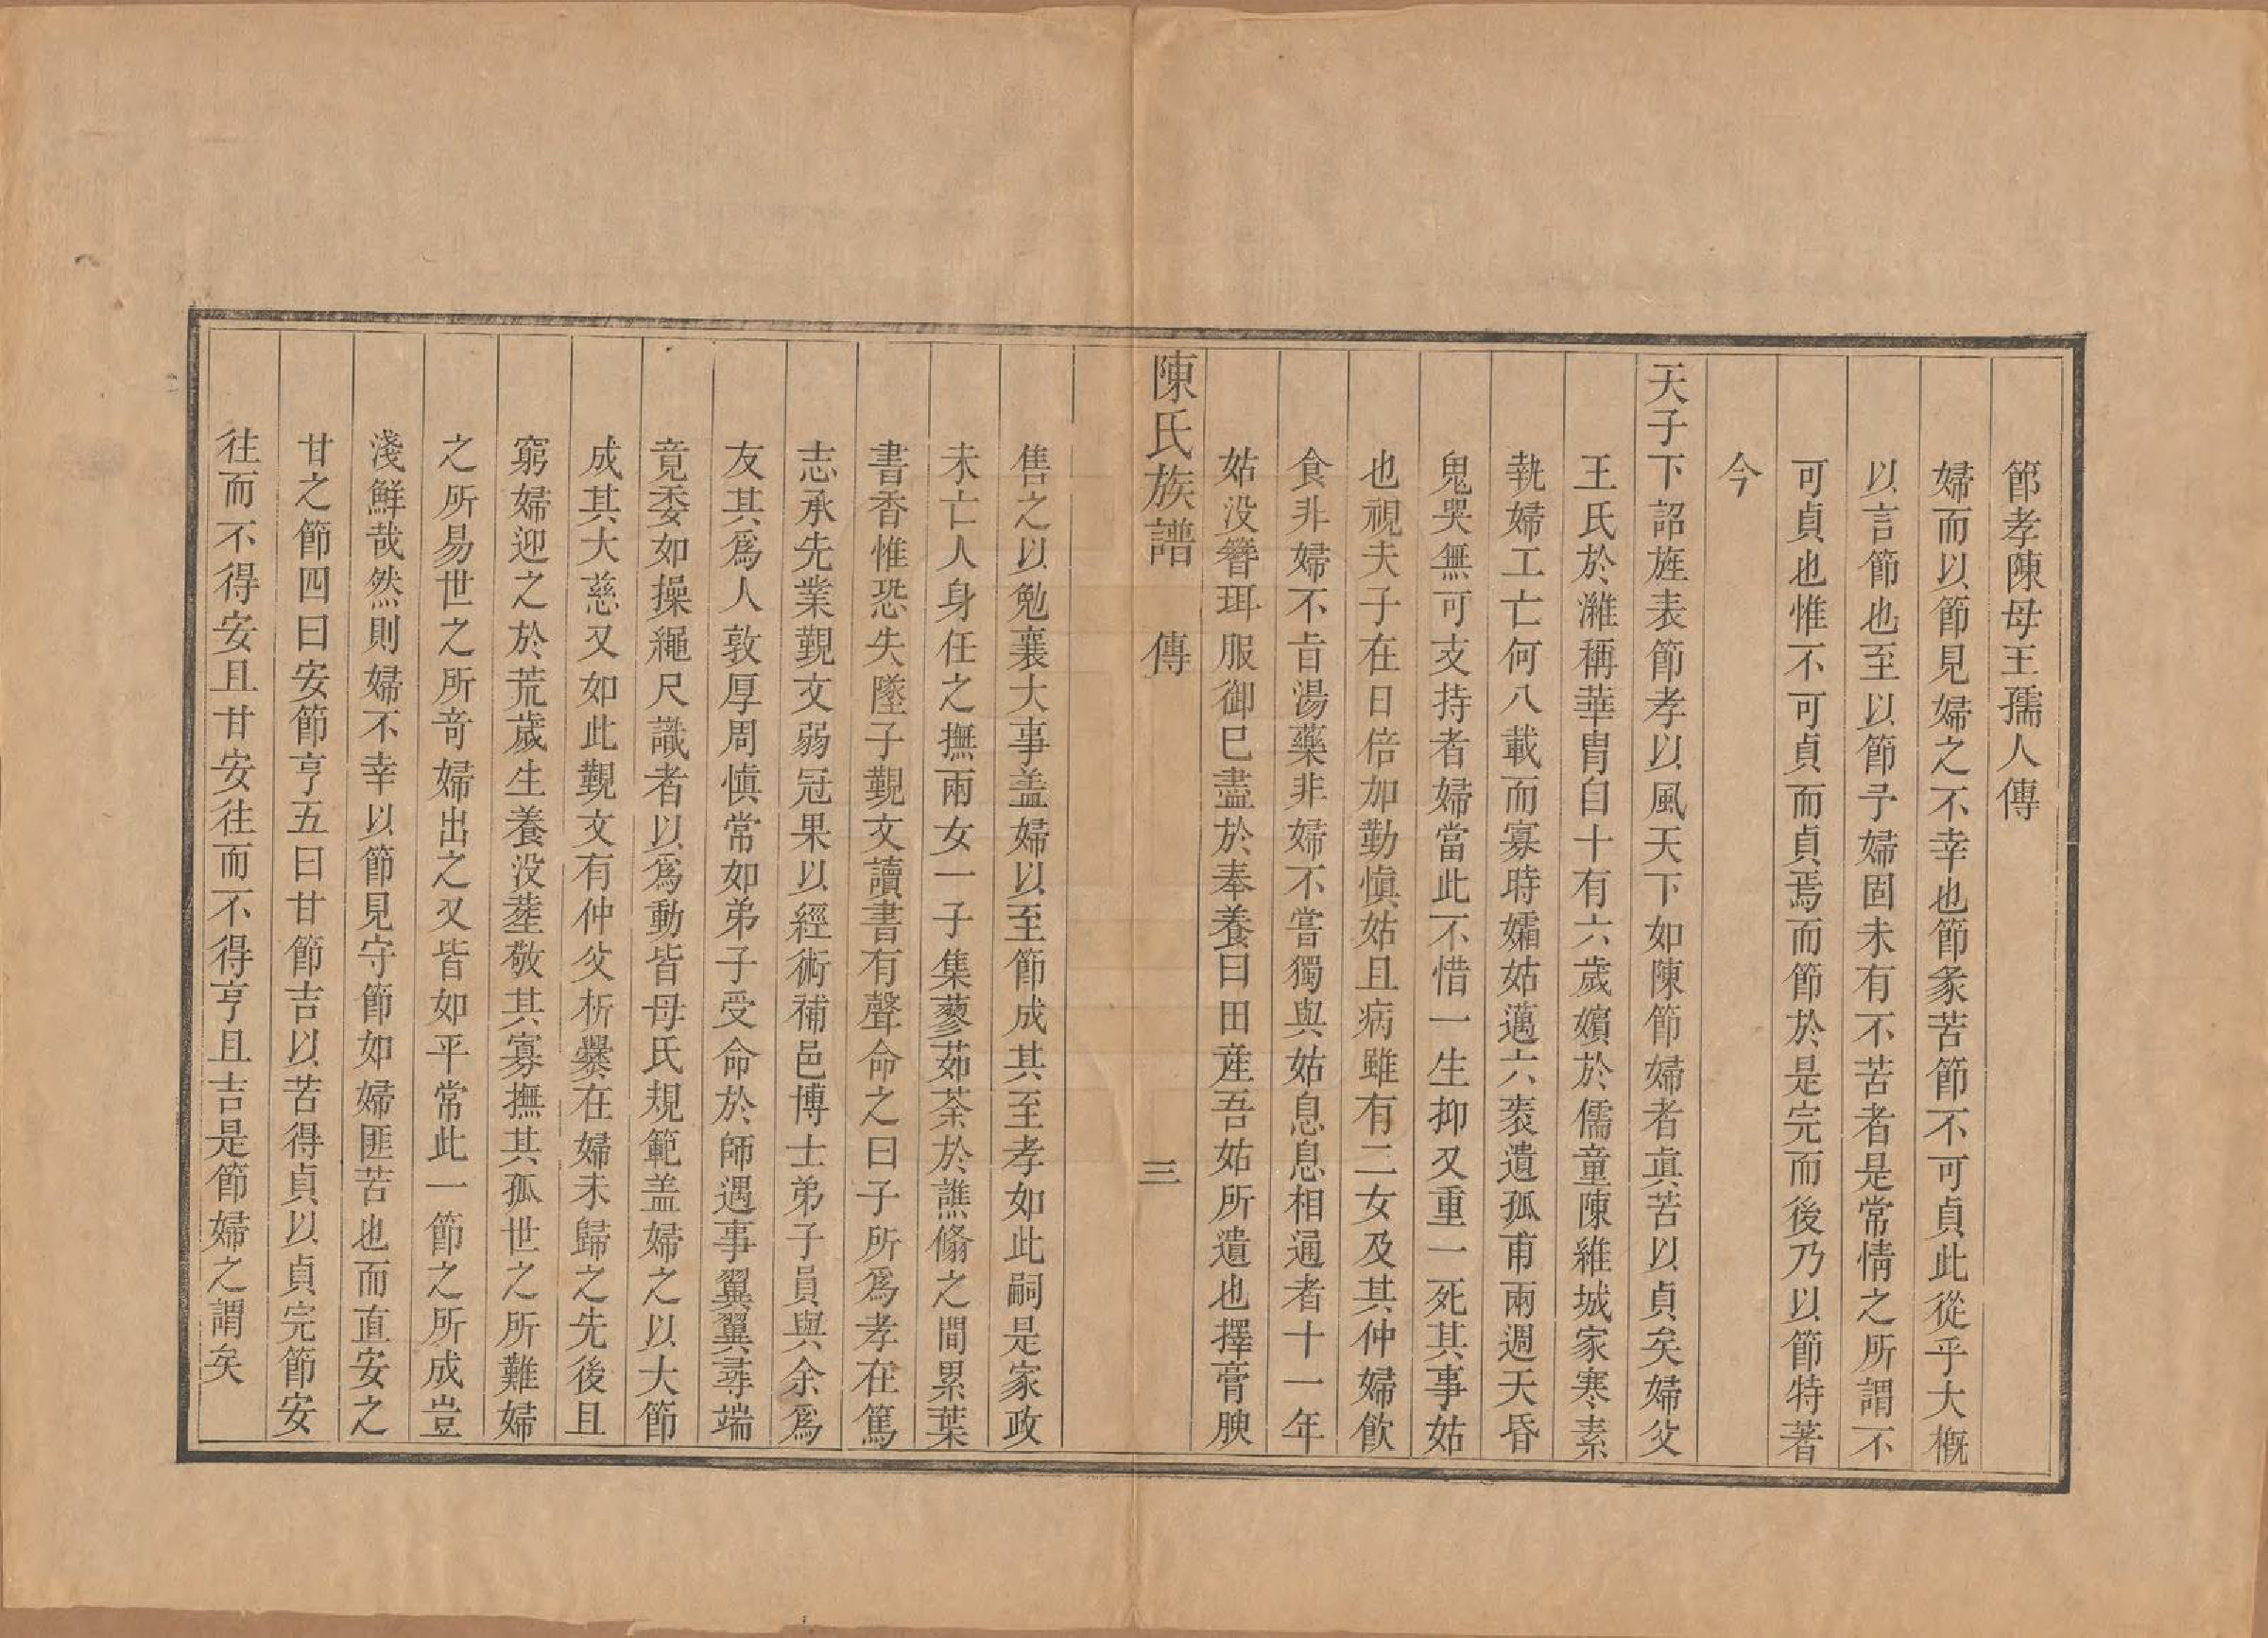 節孝陳母王孺人傳
婦而以節見婦之不幸也節彖苦節不可貞此從乎大槪
以言節也至以節予婦固未有不苦者是常情之所謂不
可貞也惟不可貞而貞焉而節於是完而後乃以節特著
今
天子下詔旌表節孝以風天下如陳節婦者眞苦以貞矣婦父
王氏於濰稱華胄自十有六歲嬪於儒童陳維城家寒素
執婦工亡何八載而寡時孀姑邁六袠遺孤甫兩週天昏
鬼哭無可支持者婦當此不惜一生抑又重一死其事姑
也視夫子在日倍加勤愼姑且病雖有二女及其仲婦飲
食非婦不旨湯藥非婦不嘗獨與姑息息相通者十一年
姑没簪珥服御巳盡於奉養曰田産吾姑所遺也擇膏腴
陳氏族譜 傳 三
售之以勉襄大事盖婦以至節成其至孝如此嗣是家政
未亡人身任之撫兩女一子集蓼茹荼於譙翛之間累葉
書香惟恐失墜子覲文讀書有聲命之曰子所爲孝在篤
志承先業覲文弱冠果以經術補邑博士弟子員與余爲
友其爲人敦厚周愼常如弟子受命於師遇事翼翼尋端
竟委如操繩尺識者以爲動皆母氏規範盖婦之以大節
成其大慈又如此覲文有仲父析爨在婦未歸之先後且
窮婦迎之於荒歲生養没塟敬其寡撫其孤世之所難婦
之所易世之所竒婦出之又皆如平常此一節之所成豈
淺鮮哉然則婦不幸以節見守節如婦匪苦也而直安之
甘之節四曰安節亨五曰甘節吉以苦得貞以貞完節安
往而不得安且甘安往而不得亨且吉是節婦之謂矣